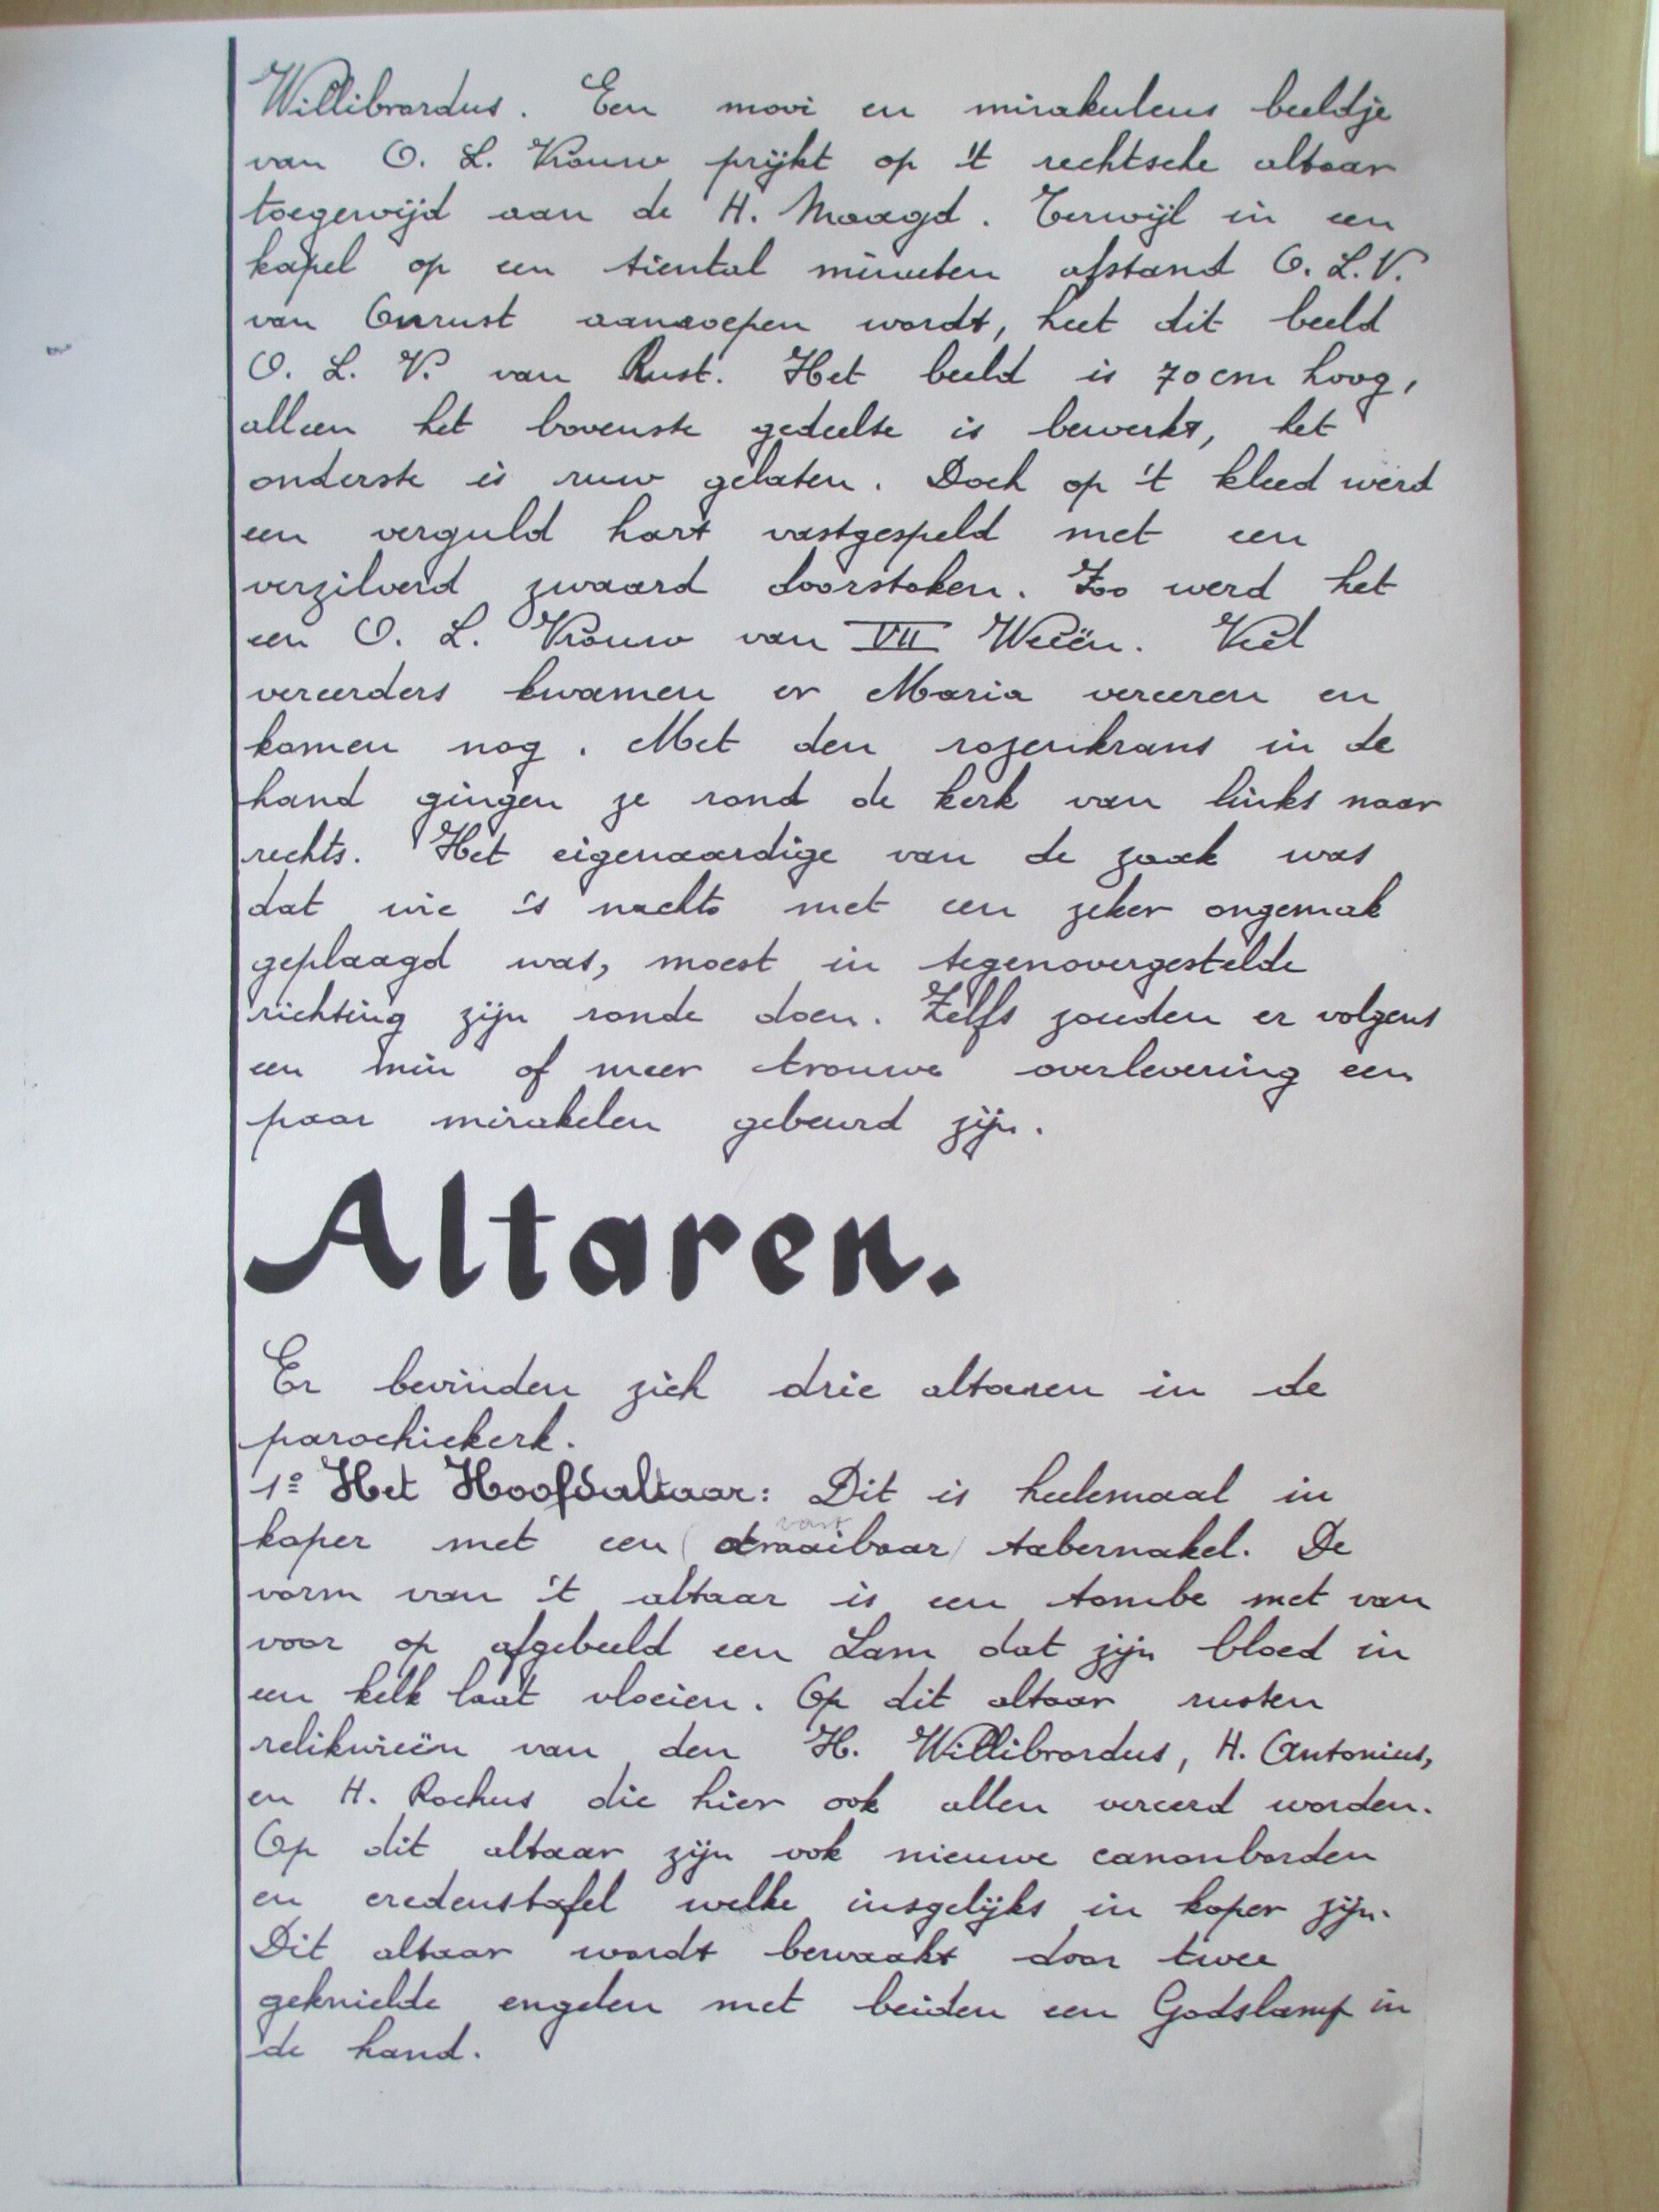 Willibrordus. Een mooi en mirakuleus beeldje
van O. L. Vrouw prijkt op 't rechtsche altaar
toegewijd aan de H. Maagd. Terwijl in een
kapel op een tiental minuten afstand O. L. V.
van Onrust aanroepen wordt, heet dit beeld
O. L. V. van Rust. Het beeld is 70 cm hoog,
alleen het bovenste gedeelte is bewerkt, het
onderste is ruw gelaten. Doch op 't kleed werd
een verguld hart vastgespeld met een
verzilverd zwaard doorstoken. Zoo werd het
een O. L. Vrouw van VII Weeën. Veel
vereerders kwamen er Maria vereeren en
komen nog. Met den rozenkrans in de
hand gingen ze rond de kerk van links naar
rechts. Het eigenaardige van de zaak was
dat wie 's nachts met een zeker ongemak
geplaagd was, moest in tegenovergestelde
richting zijn ronde doen. Zelfs zouden er volgens
een min of meer trouwe overlevering een
paar mirakelen gebeurd zijn.
Altaren.
Er bevinden zich drie altaren in de
parochiekerk.
1º Het Hoofdaltaar: Dit is heelemaal in
vast
koper met een (draaibaar) tabernakel. De
vorm van 't altaar is een tombe met van
voor op afgebeeld een Lam dat zijn bloed in
een kelk laat vloeien. Op dit altaar rusten
relikwieën van den H. Willibrordus, H. Antonius,
en H. Rochus die hier ook allen vereerd worden.
Op dit altaar zijn ook nieuwe canonborden
en credenstafel welke insgelijks in koper zijn.
Dit altaar wordt bewaakt door twee
geknielde engelen met beiden een Godslamp in
de hand.